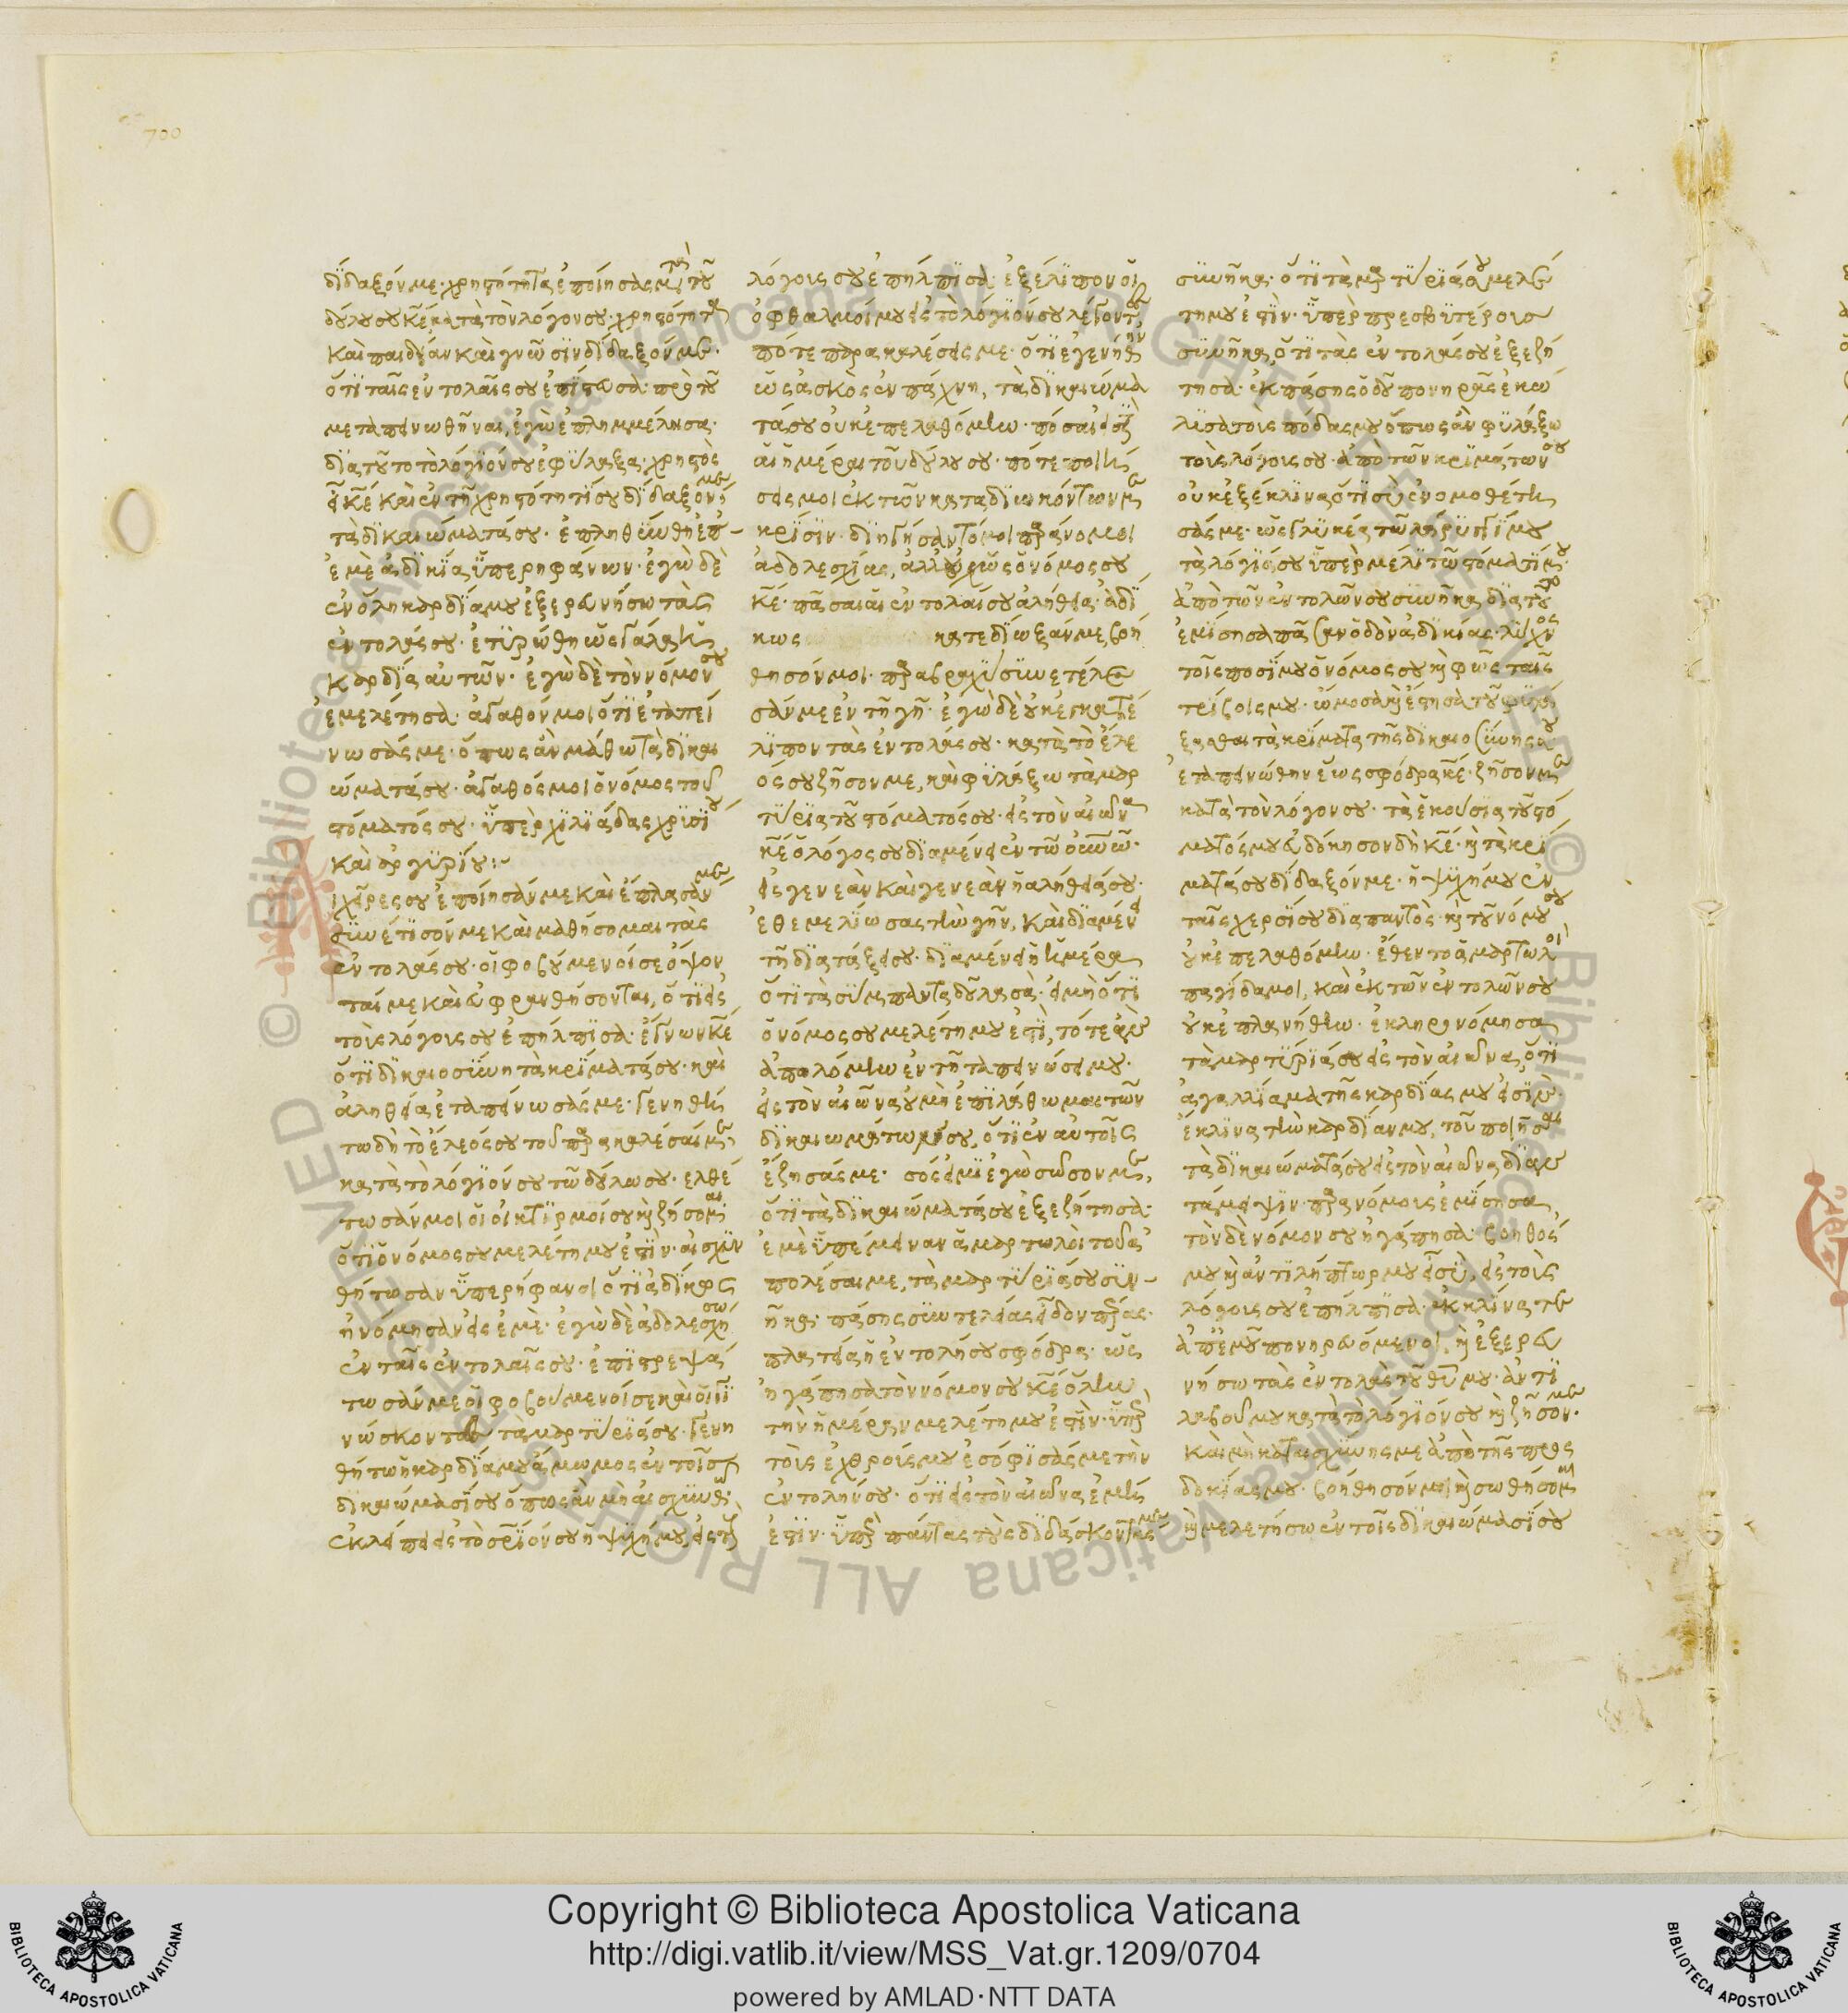 700
δίδαξόν με· χρηστότητα ἐποίησας μετὰ τοῦ
δούλου σου κ̅ε̅ κατὰ τὸν λόγον σου· χρηστότητα
καὶ παιδείαν καὶ γνῶσιν δίδαξόν με·
ὅτι ταῖς ἐντολαῖς σου ἐπίστευσα· πρὸ τοῦ
με ταπεινωθῆναι, ἐγὼ ἐπλημμέλησα·
διὰ τοῦτο τὸ λόγιόν σου ἐφύλαξα· χρηστὸς
εἶ κ̅ε̅ καὶ ἐν τῇ χρηστότητί σου δίδαξόν με
τὰ δικαιώματά σου· ἐπληθύνθη ἐπ
ἐμὲ ἀδικία ὑπερηφάνων· ἐγὼ δὲ
ἐν ὅλῃ καρδίᾳ μου ἐξερευνήσω τὰς
ἐντολάς σου· ἐτυρώθη ὡς γάλα ἡ
καρδία αὐτῶν· ἐγὼ δὲ τὸν νόμον σου
ἐμελέτησα· ἀγαθόν μοι ὅτι ἐταπεί
νωσάς με· ὅπως ἂν μάθω τὰ δικαι
ώματά σου· ἀγαθός μοι ὁ νόμος τοῦ
στόματός σου· ὑπὲρ χιλιάδας χρυσίου
καὶ ἀργυρίου:~
ι χεῖρές σου ἐποίησάν με καὶ ἔπλασάν με
συνέτισόν με καὶ μαθήσομαι τὰς
ἐντολάς σου· οἱ φοβούμενοί σε ὄψον
ταί με καὶ εὐφρανθήσονται, ὅτι εἰς
τοὺς λόγους σου ἐπήλπισα· ἔγνων κ̅ε̅
ὅτι δικαιοσύνη τὰ κρίματά σου· καὶ
ἀληθείᾳ ἐταπείνωσάς με· γενηθή
τω δὴ τὸ ἔλεός σου τοῦ παρακαλέσαι με,
κατὰ τὸ λόγιόν σου τῷ δούλῳ σου· ἐλθέ
τωσάν μοι οἱ οἰκτιρμοί σου καὶ ζήσομαι
ὅτι ὁ νόμος σου μελέτη μου ἐστίν· αἰσχυν
θήτωσαν ὑπερήφανοι ὅτι ἀδίκως
ἠνόμησαν εἰς ἐμὲ· ἐγὼ δὲ ἀδολεσχήσω
ἐν ταῖς ἐντολαῖς σου· ἐπιστρεψά
τωσάν με οἱ φοβούμενοί σε καὶ οἱ γι
νώσκοντες τὰ μαρτύριά σου· γενη
θήτω ἡ καρδία μου ἄμωμος ἐν τοῖς
δικαιώμασί σου ὅπως ἂν μὴ αἰσχυνθῶ·
ἐκλείπει εἰς τὸ σ̅ρ̅ιόν σου ἡ ψυχή μου, εἰς τοὺς
λόγους σου ἐπήλπισα· ἐξέλιπον οἱ
ὀφθαλμοί μου εἰς τὸ λόγιόν σου λέγοντες,
πότε παρακαλέσεις με· ὅτι ἐγενήθην
ὡς ἀσκὸς ἐν πάχνῃ, τὰ δικαιώμα
τά σου οὐκ ἐπελαθόμην· πόσαι εἰσὶν
αἱ ἡμέραι τοῦ δούλου σου· πότε ποιή
σεις μοι ἐκ τῶν καταδιωκόντων με
κρίσιν· διηγήσαντό μοι παράνομοι
ἀδολεσχίας, ἀλλ' οὐχ ὡς ὁ νόμος σου
κ̅ε̅· πᾶσαι αἱ ἐντολαί σου ἀλήθεια· ἀδί
κως κατεδίωξάν με βοή
θησόν μοι· παρὰ βραχὺ συνετέλε
σάν με ἐν τῇ γῇ· ἐγὼ δὲ οὐκ ἐγκατέ
λιπον τὰς ἐντολάς σου· κατὰ τὸ ἔλε
ός σου ζῆσόν με, καὶ φυλάξω τὰ μαρ
τύρια τοῦ στόματός σου· εἰς τὸν αἰῶνα
κ̅ε̅ ὁ λόγος σου διαμένει ἐν τῷ οὐ̅ν̅ῷ·
εἰς γενεὰν καὶ γενεὰν ἡ ἀλήθειά σου·
ἐθεμελίωσας τὴν γῆν, καὶ διαμένει
τῇ διατάξει σου· διαμένει ἡ ἡμέρα
ὅτι τὰ σύμπαντα δοῦλα σά· εἰ μὴ ὅτι
ὁ νόμος σου μελέτη μου ἐστὶ, τότε ἂν
ἀπωλόμην ἐν τῇ ταπεινώσει μου·
εἰς τὸν αἰῶνα οὐ μὴ ἐπιλάθωμαι τῶν
δικαιωμάτων σου, ὅτι ἐν αὐτοῖς
ἔζησάς με· σός εἰμι ἐγὼ σῶσόν με,
ὅτι τὰ δικαιώματά σου ἐξεζήτησα·
ἐμὲ ὑπέμειναν ἁμαρτωλοὶ τοῦ ἀ
πολέσαι με, τὰ μαρτύριά σου συν
ῆκα· πάσης συντελείας εἶδον πέρας·
πλατεῖα ἡ ἐντολή σου σφόδρα· ὡς
ἠγάπησα τὸν νόμον σου κ̅ε̅ ὅλην
τὴν ἡμέραν μελέτη μου ἐστὶν· ὑπὲρ
τοὺς ἐχθρούς μου ἐσόφισάς με τὴν
ἐντολήν σου· ὅτι εἰς τὸν αἰῶνα ἐμή
ἐστιν· ὑπὲρ πάντας τοὺς διδάσκοντάς με
συνῆκα· ὅτι τὰ μαρτύριά σου μελέ
τη μου ἐστὶν· ὑπὲρ πρεσβυτέρους
συνῆκα, ὅτι τὰς ἐντολάς σου ἐξεζή
τησα· ἐκ πάσης ὁδοῦ πονηρᾶς ἐκώ
λυσα τοὺς πόδας μου ὅπως ἂν φυλάξω
τοὺς λόγους σου· ἀπὸ τῶν κριμάτων σου
οὐκ ἐξέκλινα ὅτι σὺ ἐνομοθέτη
σάς με· ὡς γλυκέα τῷ λάρυγγί μου
τὰ λόγιά σου ὑπὲρ μέλι τῷ στόματί μου·
ἀπὸ τῶν ἐντολῶν σου συνῆκα διὰ τοῦτο
ἐμίσησα πᾶσαν ὁδὸν ἀδικίας· λύχνος
τοῖς ποσί μου ὁ νόμος σου καὶ φῶς ταῖς
τρίβοις μου· ὤμοσα καὶ ἔστησα τοῦ φυλά
ξασθαι τὰ κρίματα τῆς δικαιοσύνης σου·
ἐταπεινώθην ἕως σφόδρα κ̅ε̅· ζῆσόν με
κατὰ τὸν λόγον σου· τὰ ἑκούσια τοῦ στό
ματός μου εὐδόκησον δὴ κ̅ε̅· καὶ τὰ κρί
ματά σου δίδαξόν με· ἡ ψυχή μου ἐν
ταῖς χερσί σου διαπαντὸς· καὶ τοῦ νόμου σου
οὐκ ἐπελαθόμην· ἔθεντο ἁμαρτωλοὶ
παγίδα μοι, καὶ ἐκ τῶν ἐντολῶν σου
οὐκ ἐπλανήθην· ἐκληρονόμησα
τὰ μαρτύριά σου εἰς τὸν αἰῶνα, ὅτι
ἀγαλλίαμα τῆς καρδίας μου εἰσίν·
ἔκλινα τὴν καρδίαν μου, τοῦ ποιῆσαι
τὰ δικαιώματά σου εἰς τὸν αἰῶνα δι' ἀν
τάμειψιν· παρανόμους ἐμίσησα,
τὸν δὲ νόμον σου ἠγάπησα· βοηθός
μου καὶ ἀντιλήπτωρ μου εἶ σὺ, εἰς τοὺς
λόγους σου ἐπήλπισα· ἐκκλίνατε
ἀπ' ἐμοῦ πονηρευόμενοι, καὶ ἐξερευ
νήσω τὰς ἐντολὰς τοῦ θ̅υ̅ μου· ἀντι
λαβοῦ μου κατὰ τὸ λόγιόν σου καὶ ζῆσόν με·
καὶ μὴ καταισχύνῃς με ἀπὸ τῆς προσ
δοκίας μου· βοήθησόν μοι καὶ σωθήσομαι
καὶ μελετήσω ἐν τοῖς δικαιώμασί σου
Copyright © Biblioteca Apostolica Vaticana
http://digi.vatlib.it/view/MSS_Vat.gr.1209/0704
powered by AMLAD·NTT DATA
BIBLIOTECA APOSTOLICA VATICANA
BIBLIOTECA APOSTOLICA VATICANA
© Biblioteca Apostolica Vaticana ALL RIGHTS RESERVED © Biblioteca Apostolica Vaticana ALL RIGHTS RESERVED